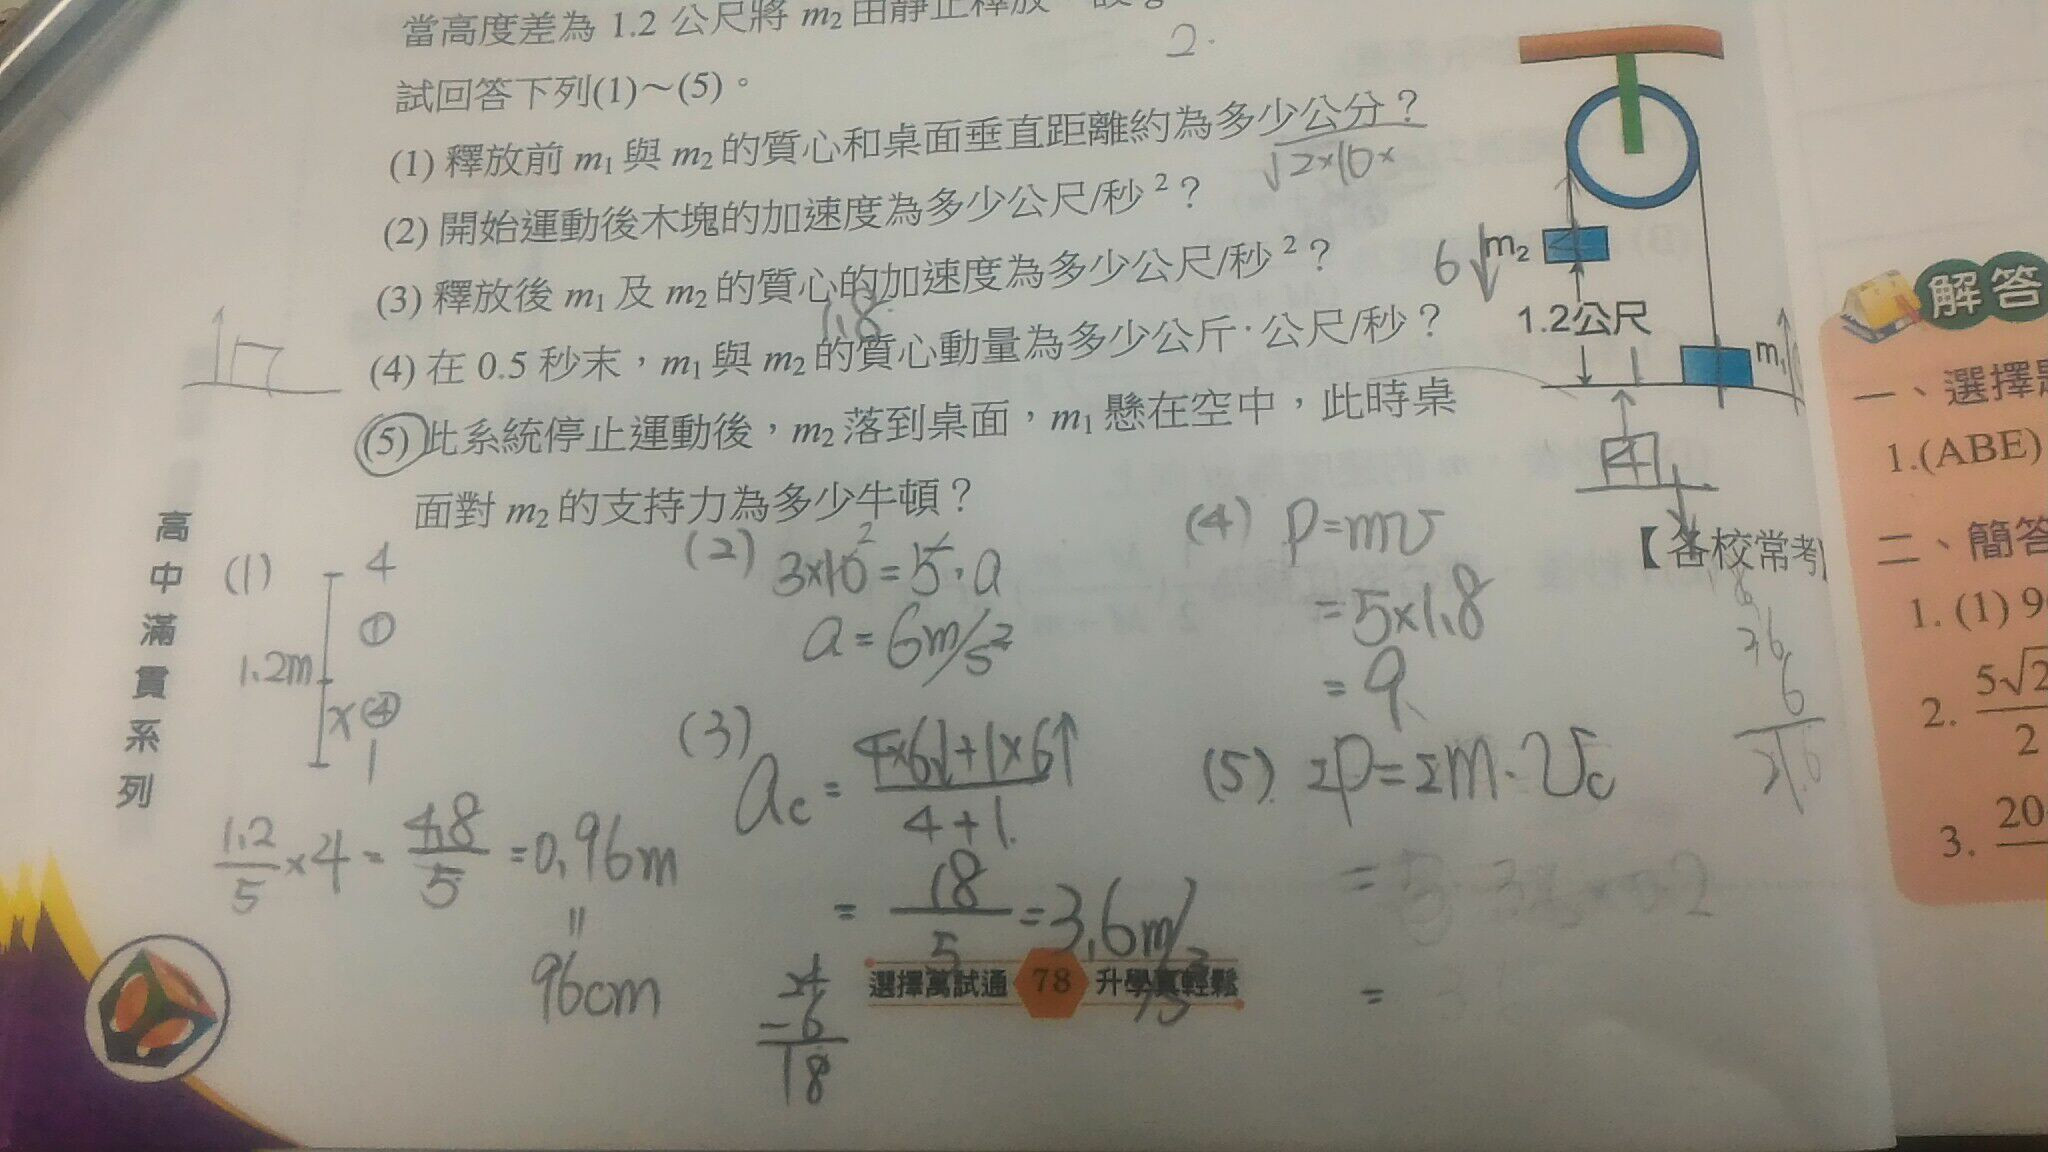 當高度差為 1.2 公尺將 m₂ 由靜止釋放,設 g
2.
試回答下列(1)～(5)。
(1) 釋放前 m₁ 與 m₂ 的質心和桌面垂直距離約為多少公分？
√2×10×
(2) 開始運動後木塊的加速度為多少公尺/秒²？
(3) 釋放後 m₁ 及 m₂ 的質心的加速度為多少公尺/秒²？
1.8
(4) 在 0.5 秒末，m₁ 與 m₂ 的質心動量為多少公斤·公尺/秒？
(5) 此系統停止運動後，m₂ 落到桌面，m₁ 懸在空中，此時桌
面對 m₂ 的支持力為多少牛頓？
6
m₂
1.2公尺
m₁
4
【各校常考】
(1)
4
①
1.2m
x ④
1
1.2/5 ×4 = 4.8/5 = 0.96m
=
96cm
(2) 3×10 = 5·a
a = 6m/s²
(3)
ac = 4×6↓+1×6↑ / 4+1
= 18/5 = 3.6m/s²
24
-6
18
(4) P=mv
= 5×1.8
= 9
(5) ΣP=Σm·Vc
=
=
高中滿貫系列
選擇萬試通 78 升學真輕鬆
解答
一、選擇題
1.(ABE)
二、簡答
1. (1) 9
2. 5√2/2
3. 20